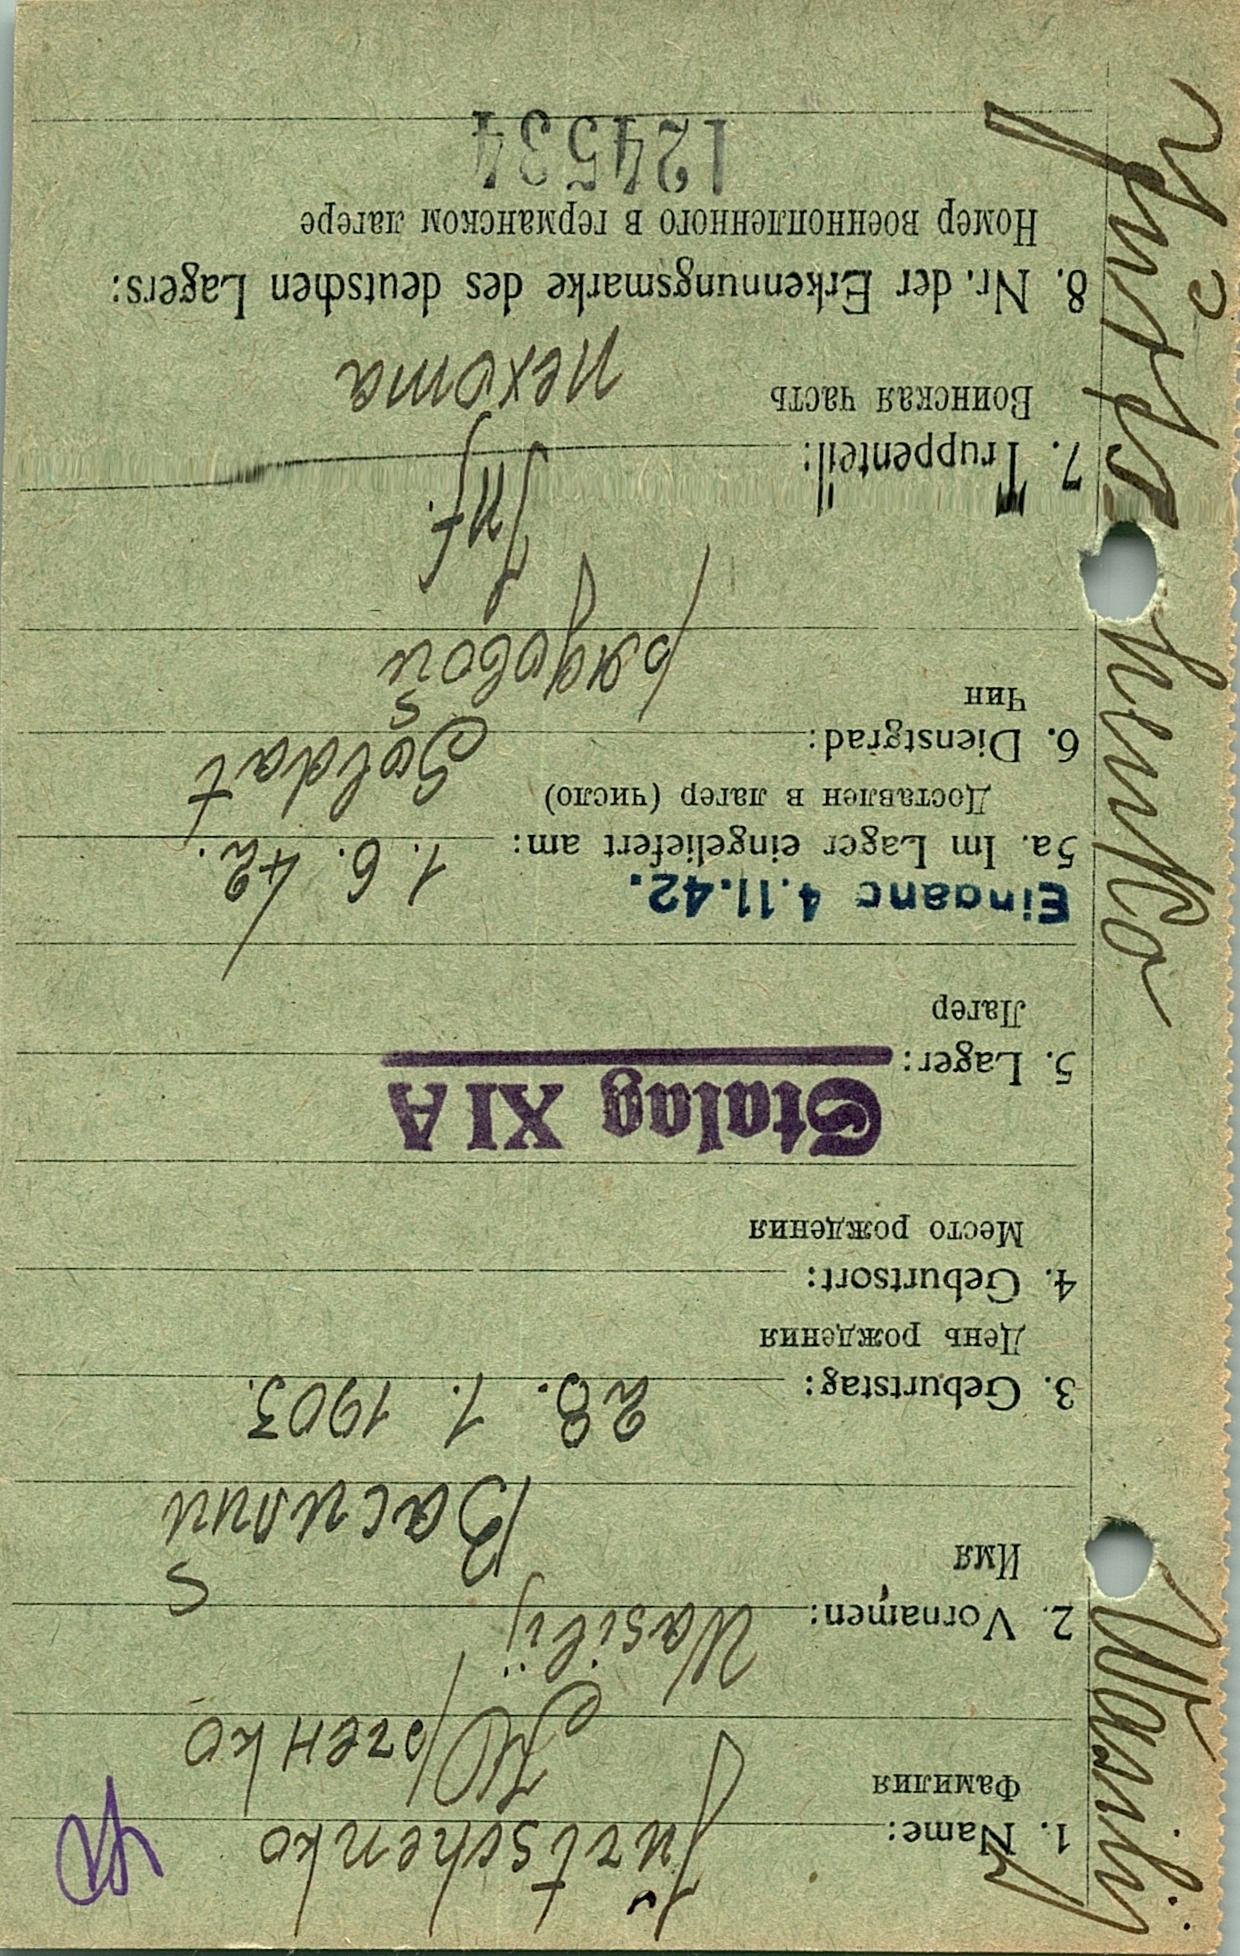 1. Name: Jurtschenko
Фамилия Юрченко
2. Vornamen: Wasilij
Имя Василий
3. Geburtstag: 28. 1. 1903.
День рождения
4. Geburtsort:
Место рождения
Stalag XI A
5. Lager:
Лагер
Eingang 4.11.42.
5a. Im Lager eingeliefert am: 1. 6. 42.
Доставлен в лагер (число)
6. Dienstgrad: Soldat
Чин рядовой
Inf.
7. Truppenteil:
Воинская часть пехота
8. Nr. der Erkennungsmarke des deutschen Lagers:
Номер военнопленного в германском лагере
124534
Wasilij